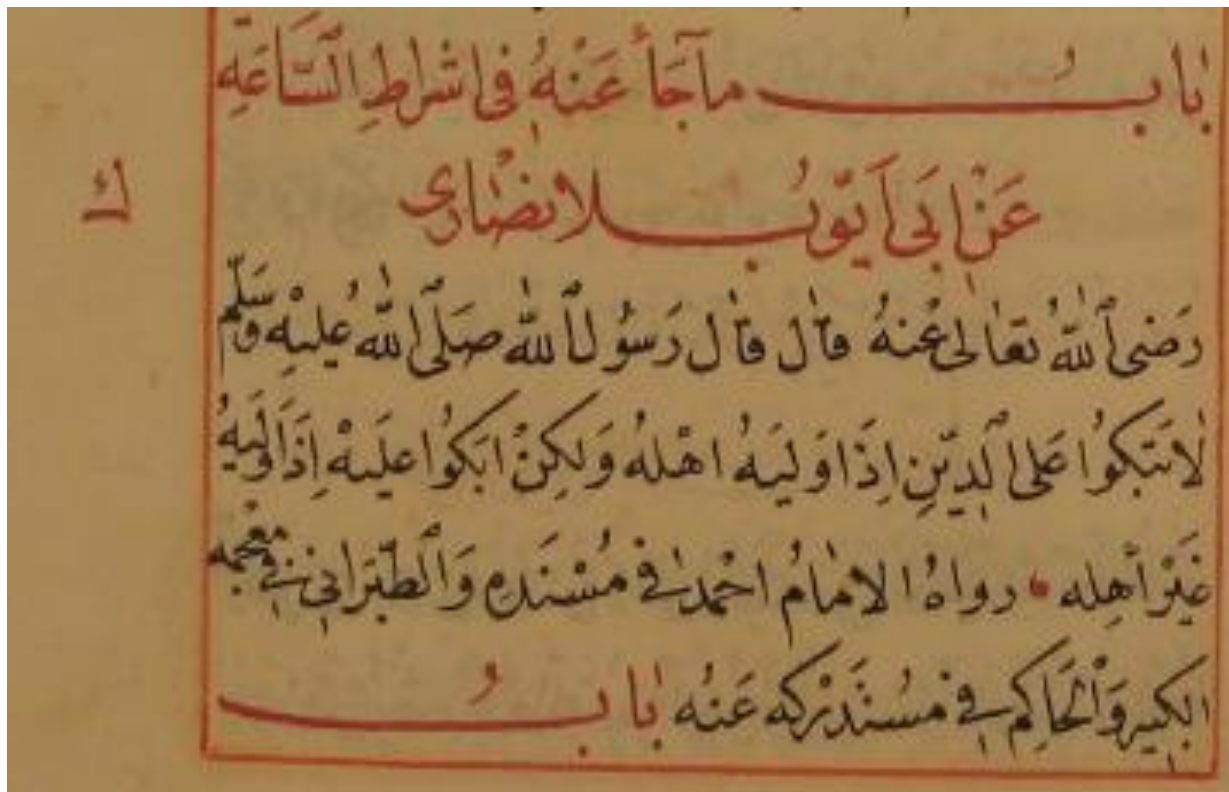 باب ما جاء عنه في اشراط الساعة
عن ابي ايوب الانصاري
ك
رضي الله تعالى عنه قال قال رسول الله صلى الله عليه وسلم
لا تبكوا على الدين اذا وليه اهله ولكن ابكوا عليه اذا وليه
غير اهله رواه الامام احمد في مسنده والطبراني في معجمه
الكبير والحاكم في مستدركه عنه باب